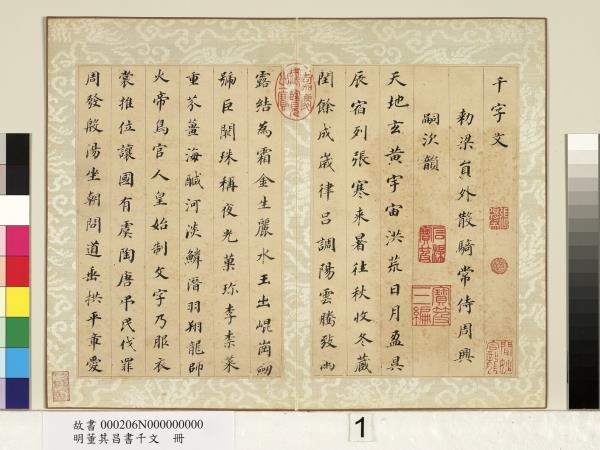 千字文
勅梁員外散騎常侍周興
嗣次韻
天地玄黃宇宙洪荒日月盈昃
辰宿列張寒來暑往秋收冬藏
閏餘成歲律呂調陽雲騰致雨
露結為霜金生麗水玉出崐崗劒
號巨闕珠稱夜光菓珍李柰菜
重芥薑海鹹河淡鱗潛羽翔龍師
火帝鳥官人皇始制文字乃服衣
裳推位讓國有虞陶唐弔民伐罪
周發殷湯坐朝問道垂拱平章愛
石渠寶笈
寶笈三編
嘉慶御覽之寶
故書 000206N000000000
明董其昌書千文 冊
1